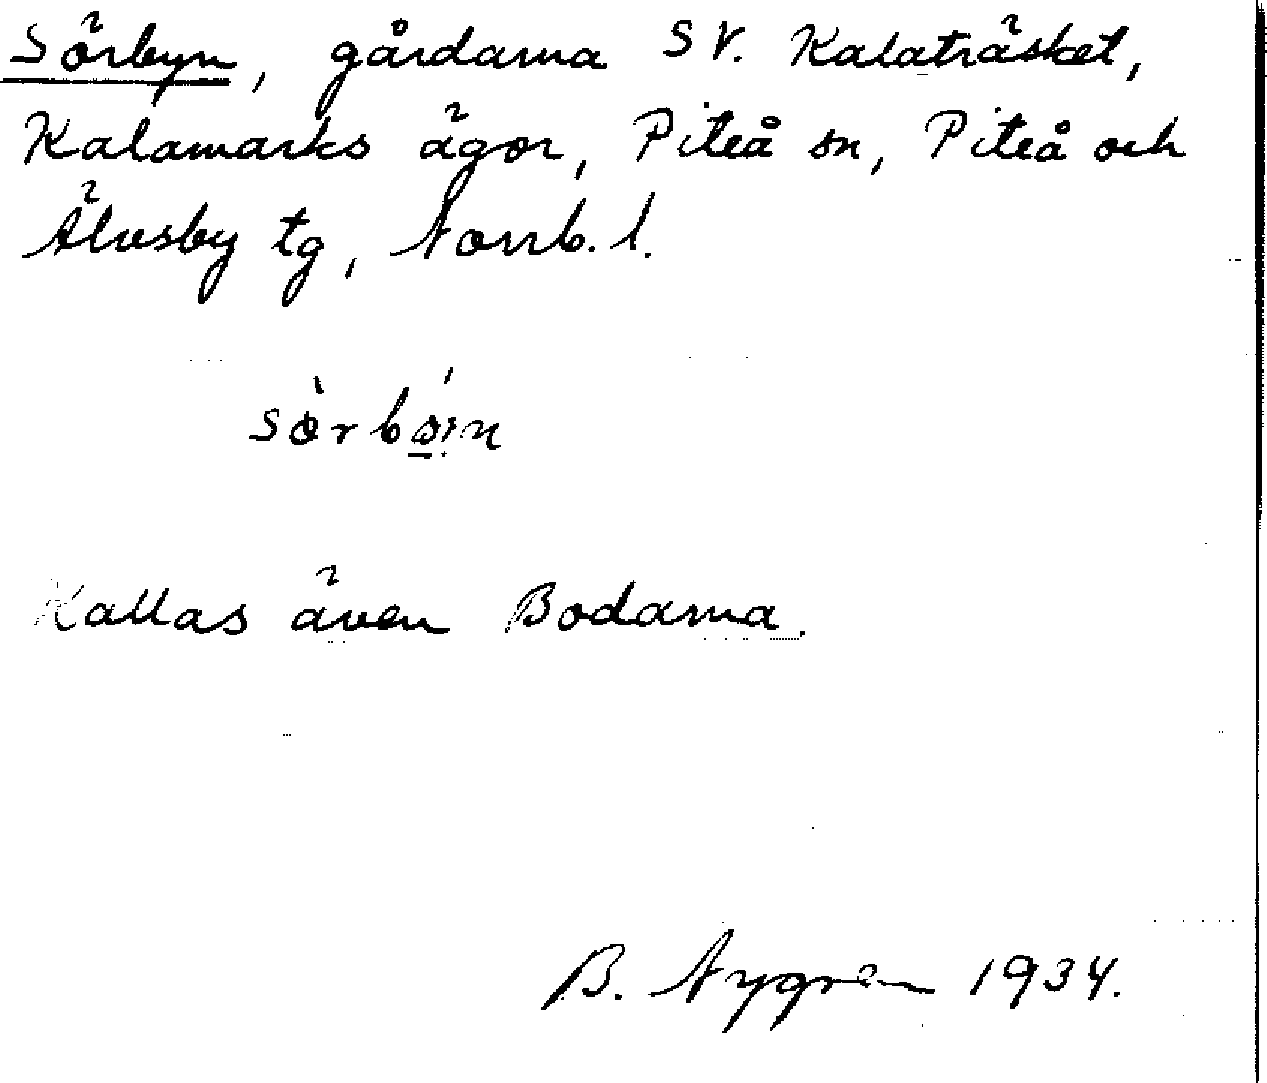 Sörbyn, gårdarna SV. Kalaträsket,
Kalamarks ägor, Piteå sn, Piteå och
Älvsby tg, Norrb. l.
sòrbǿin
Kallas även Bodarna.
B. Nygren 1934.